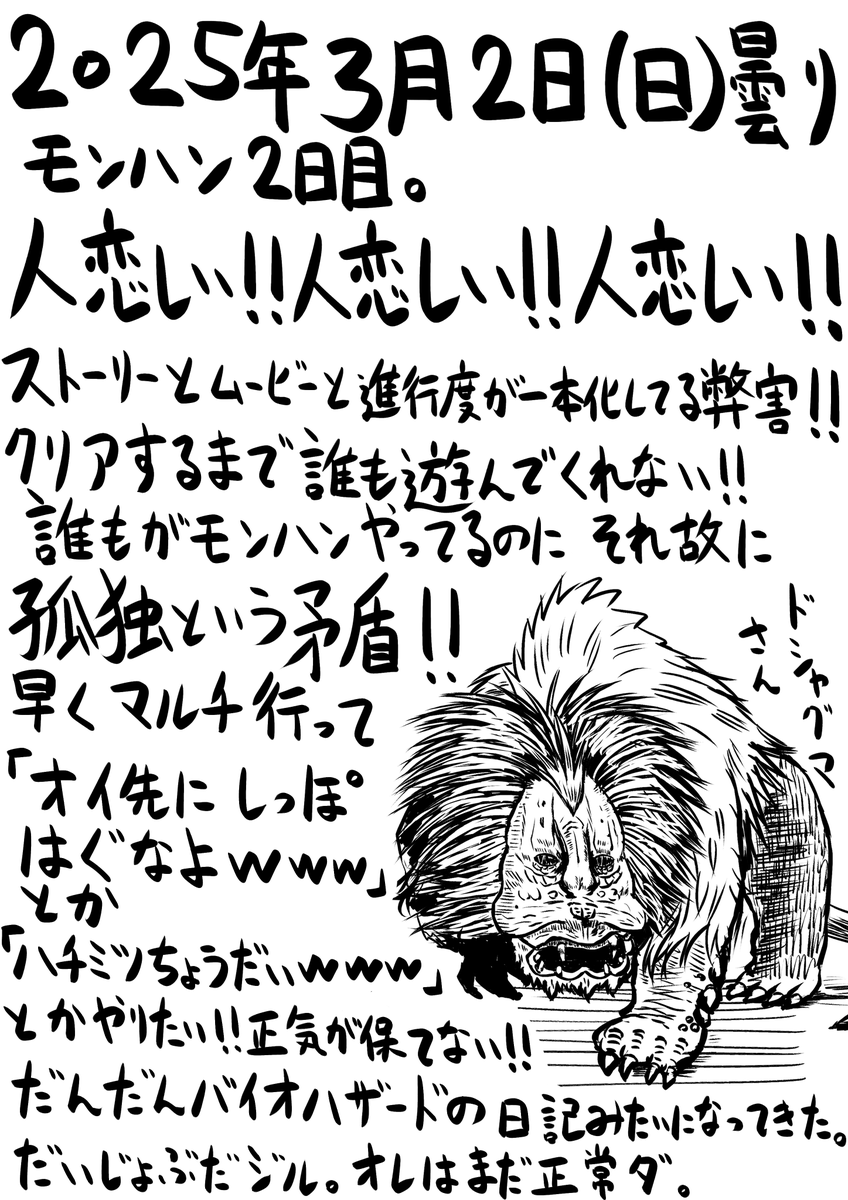 2025年3月2日(日)曇り
モンハン2日目。
人恋しい!!人恋しい!!人恋しい!!
ストーリーとムービーと進行度が一本化してる弊害!!
クリアするまで誰も遊んでくれない!!
誰もがモンハンやってるのにそれ故に
孤独という矛盾!!
早くマルチ行って
「オイ先にしっぽ
はぐなよwww」
とか
「ハチミツちょうだいwww」
とかやりたい!!正気が保てない!!
だんだんバイオハザードの日記みたいになってきた。
だいじょぶだジル。オレはまだ正常ダ。
ドシャグマ
さん